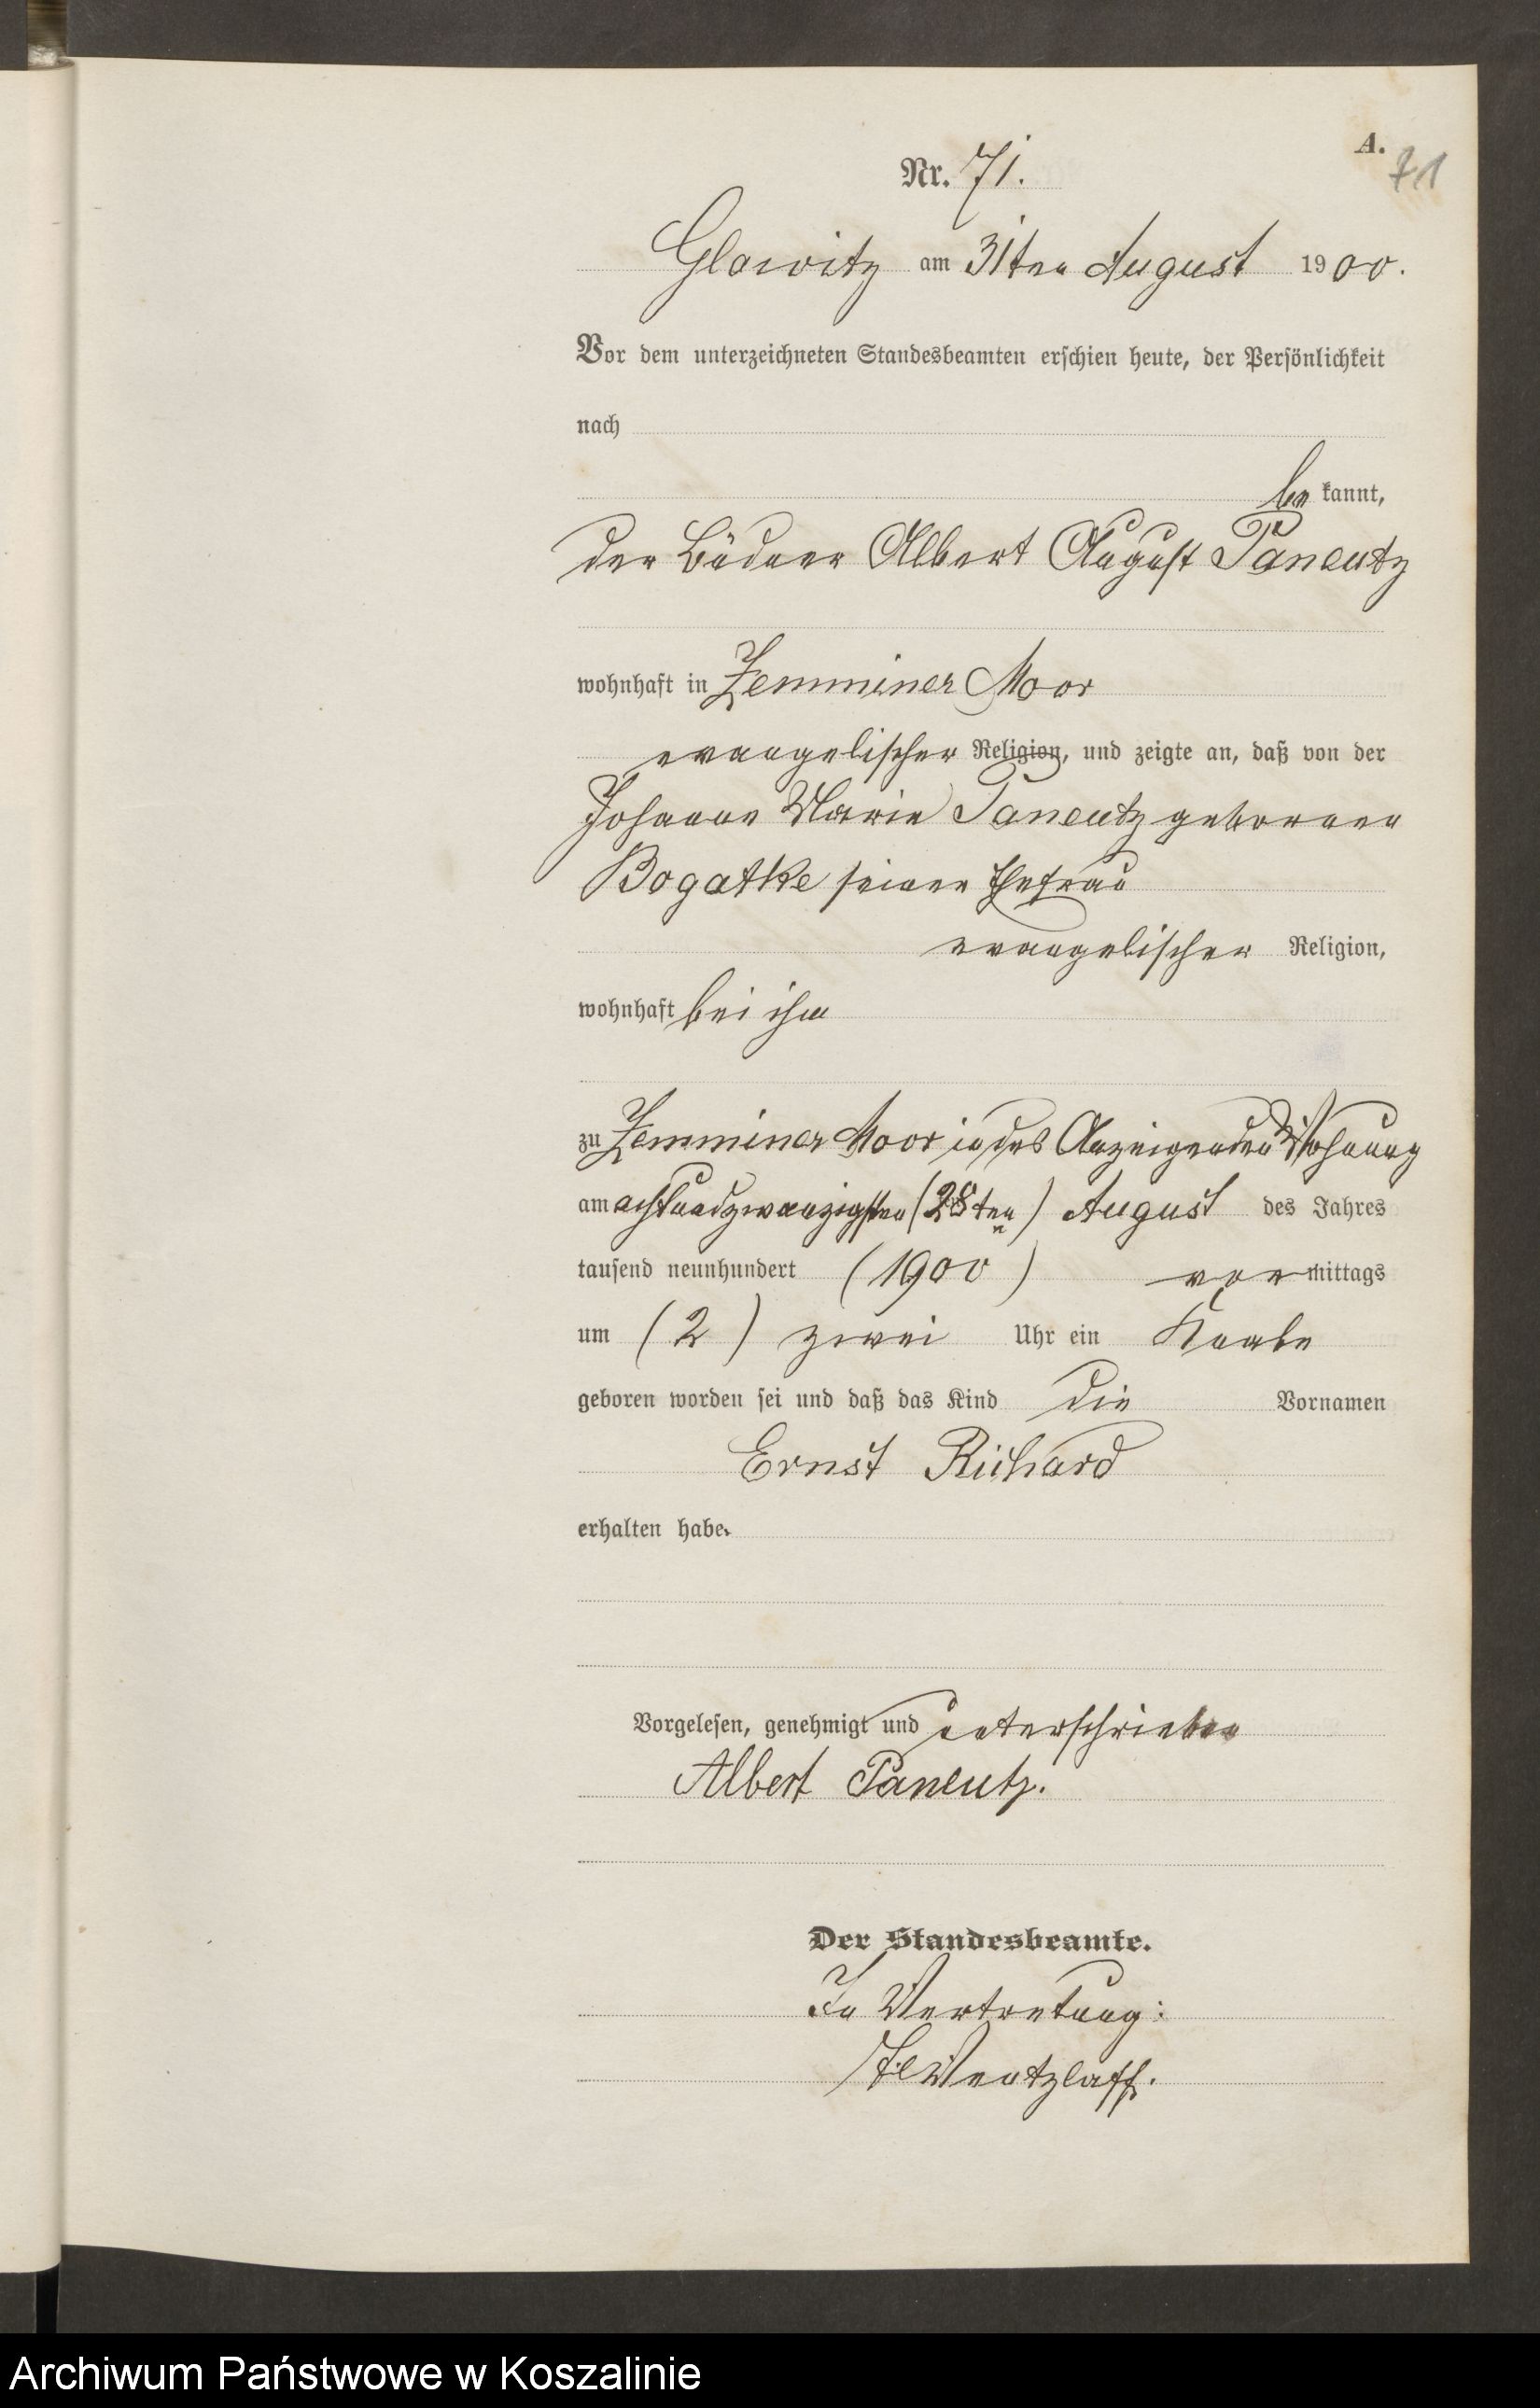 A.
71
Nr. 71.
Glowitz am 31ten August 1900.
Vor dem unterzeichneten Standesbeamten erschien heute, der Persönlichkeit
nach
be kannt,
der Büdner Albert August Paneutz
wohnhaft in Zemminer Moor
evangelischer Religion, und zeigte an, daß von der
Johanne Marie Paneutz geborenen
Bogatke seiner Ehefrau
evangelischer Religion,
wohnhaft bei ihm
zu Zemminer Moor in des Anzeigenden Wohnung
am achtundzwanzigsten (28ten) August des Jahres
tausend neunhundert (1900) vor mittags
um (2) zwei Uhr ein Knabe
geboren worden sei und daß das Kind die Vornamen
Ernst Richard
erhalten habe.
Vorgelesen, genehmigt und unterschrieben
Albert Paneutz.
Der Standesbeamte.
In Vertretung:
Wentzlaff.
Archiwum Państwowe w Koszalinie